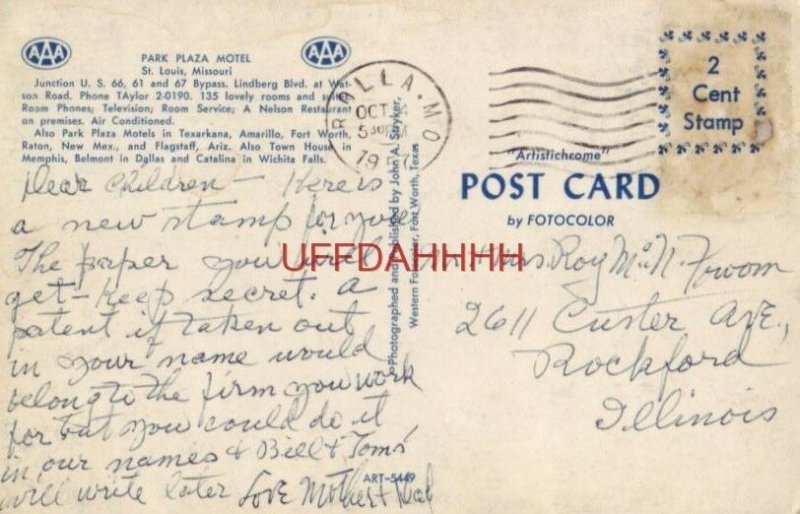 AAA
AAA
PARK PLAZA MOTEL
St. Louis, Missouri
Junction U. S. 66, 61 and 67 Bypass. Lindberg Blvd. at Wat-
son Road. Phone TAylor 2-0190. 135 lovely rooms and suites
Room Phones; Television; Room Service; A Nelson Restaurant
on premises. Air Conditioned.
Also Park Plaza Motels in Texarkana, Amarillo, Fort Worth,
Raton, New Mex., and Flagstaff, Ariz. Also Town House in
Memphis, Belmont in Dallas and Catalina in Wichita Falls.
ROLLA. MO
OCT
5 30 PM
19
2
Cent
Stamp
"Artistichrome"
POST CARD
by FOTOCOLOR
Dear Children - Here is
a new stamp for you.
The paper you will
get - keep secret. A
patent if taken out
in your name would
belong to the firm you work
for but you could do it
in our names & Bill & Toms'
will write later Love Mother &
Photographed and published by John A. Stryker,
Western Foto Fort Worth, Texas
UFFDAHHHH
Mrs. Roy McN.
2611 Custer Ave.,
Rockford
Illinois
ART-5449